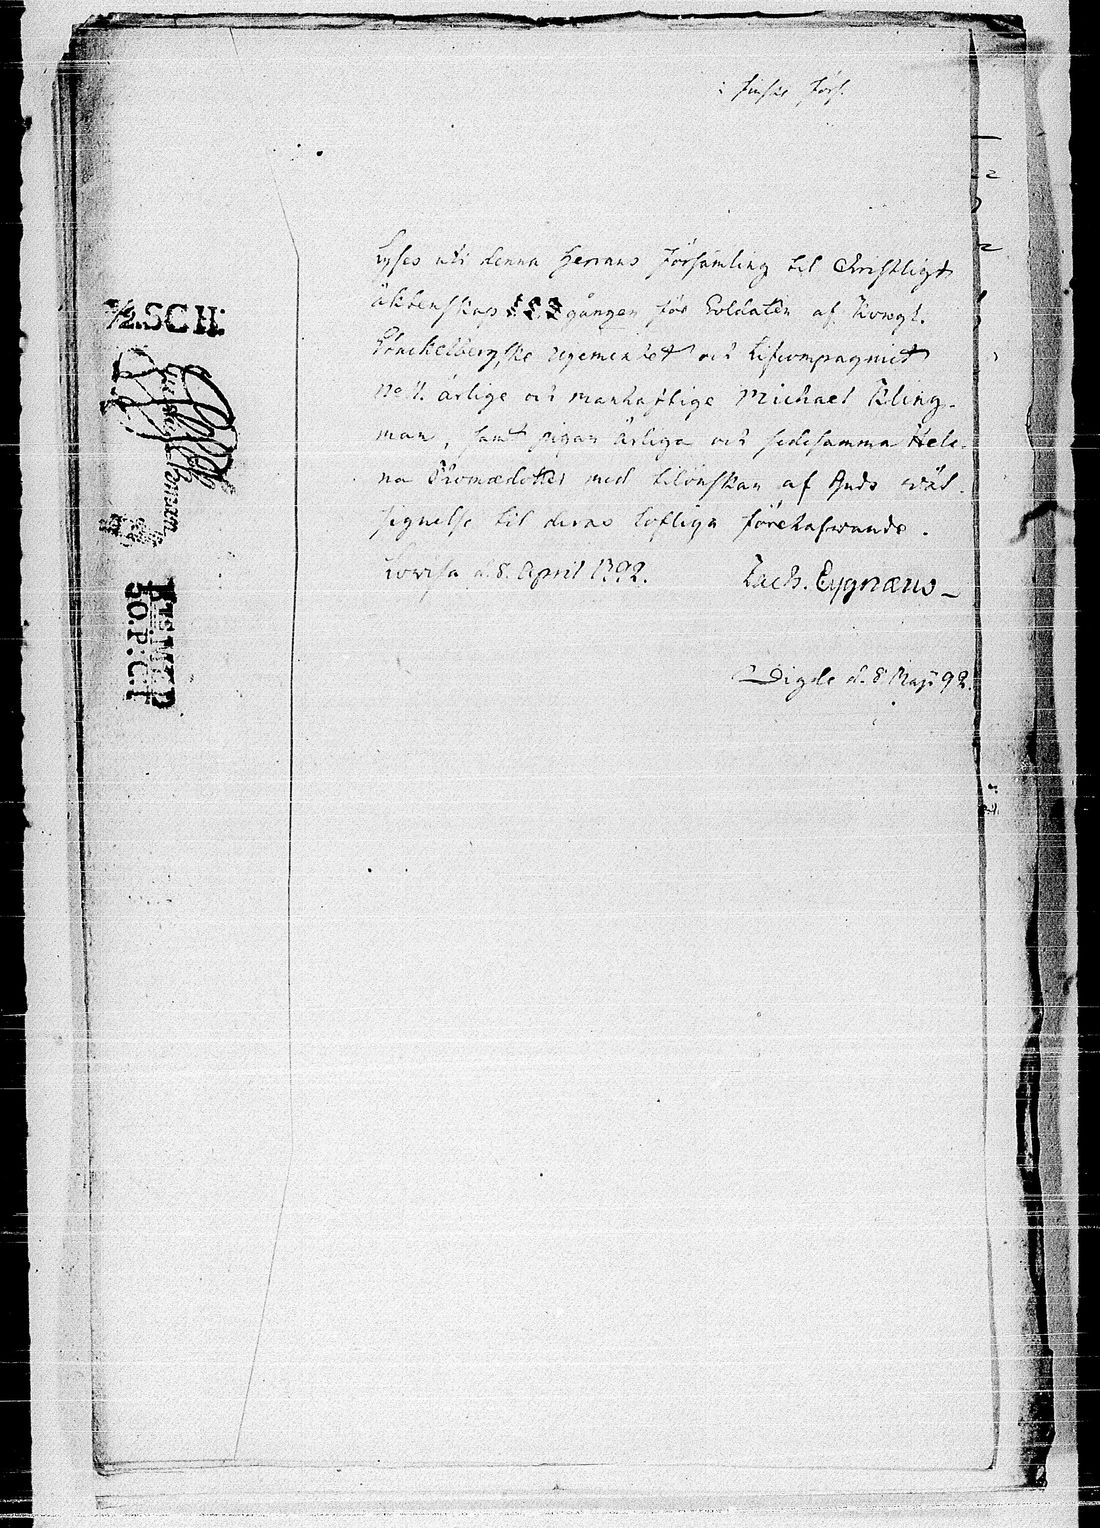 i finska förs.
Lyses uti denna Herrans Församling til Christligt
äktenskap 1 2 3 gången för Soldaten af Kongl.
Stackelbergske regementet och Lifcompagniet
No 11. ärlige och manhaftige Michael Kling-
man, samt pigan ärliga och sedesamma Hele-
na Thomædotter med tilönskan af Guds wäl-
signelse til deras lofliga förehafwande.
Lovisa d. 8. April 1792. Zach. Cygnæus
Wigde d. 8 Maji 92.
½.SCH:
50.P:CT